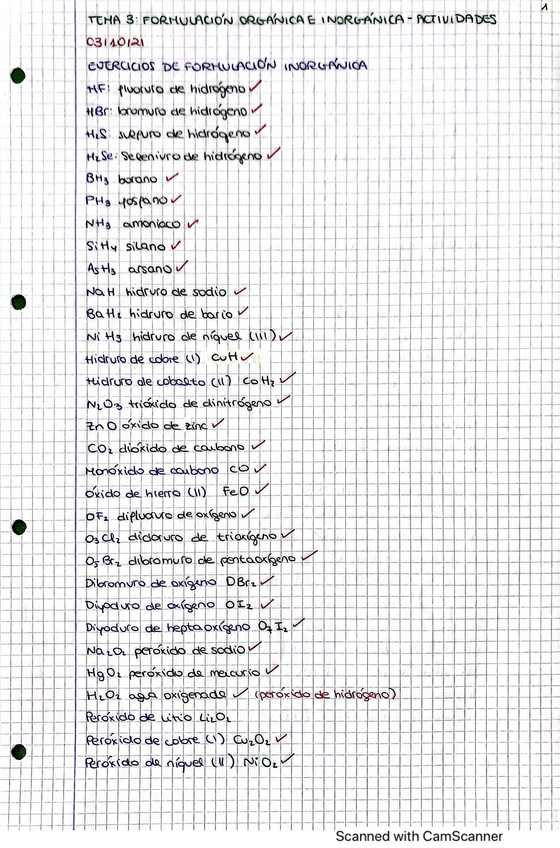 1
TEMA 3: FORMULACIÓN ORGÁNICA E INORGÁNICA - ACTIVIDADES
03/10/21
EJERCICIOS DE FORMULACIÓN INORGÁNICA
HF: fluoruro de hidrógeno ✓
HBr: bromuro de hidrógeno ✓
H₂S: sulfuro de hidrógeno ✓
H₂Se: Seleniuro de hidrógeno ✓
BH₃ borano ✓
PH₃ fosfano ✓
NH₃ amoniaco ✓
SiH₄ silano ✓
AsH₃ arsano ✓
NaH hidruro de sodio ✓
BaH₂ hidruro de bario ✓
NiH₃ hidruro de níquel (III) ✓
Hidruro de cobre (I) CuH ✓
Hidruro de cobalto (II) CoH₂ ✓
N₂O₃ trióxido de dinitrógeno ✓
ZnO óxido de zinc ✓
CO₂ dióxido de carbono ✓
Monóxido de carbono CO ✓
óxido de hierro (II) FeO ✓
OF₂ difluoruro de oxígeno ✓
O₃Cl₂ dicloruro de trioxígeno ✓
O₅Br₂ dibromuro de pentaoxígeno ✓
Dibromuro de oxígeno OBr₂ ✓
Diyoduro de oxígeno OI₂ ✓
Diyoduro de heptaoxígeno O₇I₂ ✓
Na₂O₂ peróxido de sodio ✓
HgO₂ peróxido de mercurio ✓
H₂O₂ agua oxigenada ✓ (peróxido de hidrógeno)
Peróxido de litio Li₂O₂
Peróxido de cobre (I) Cu₂O₂ ✓
Peróxido de níquel (II) NiO₂ ✓
Scanned with CamScanner